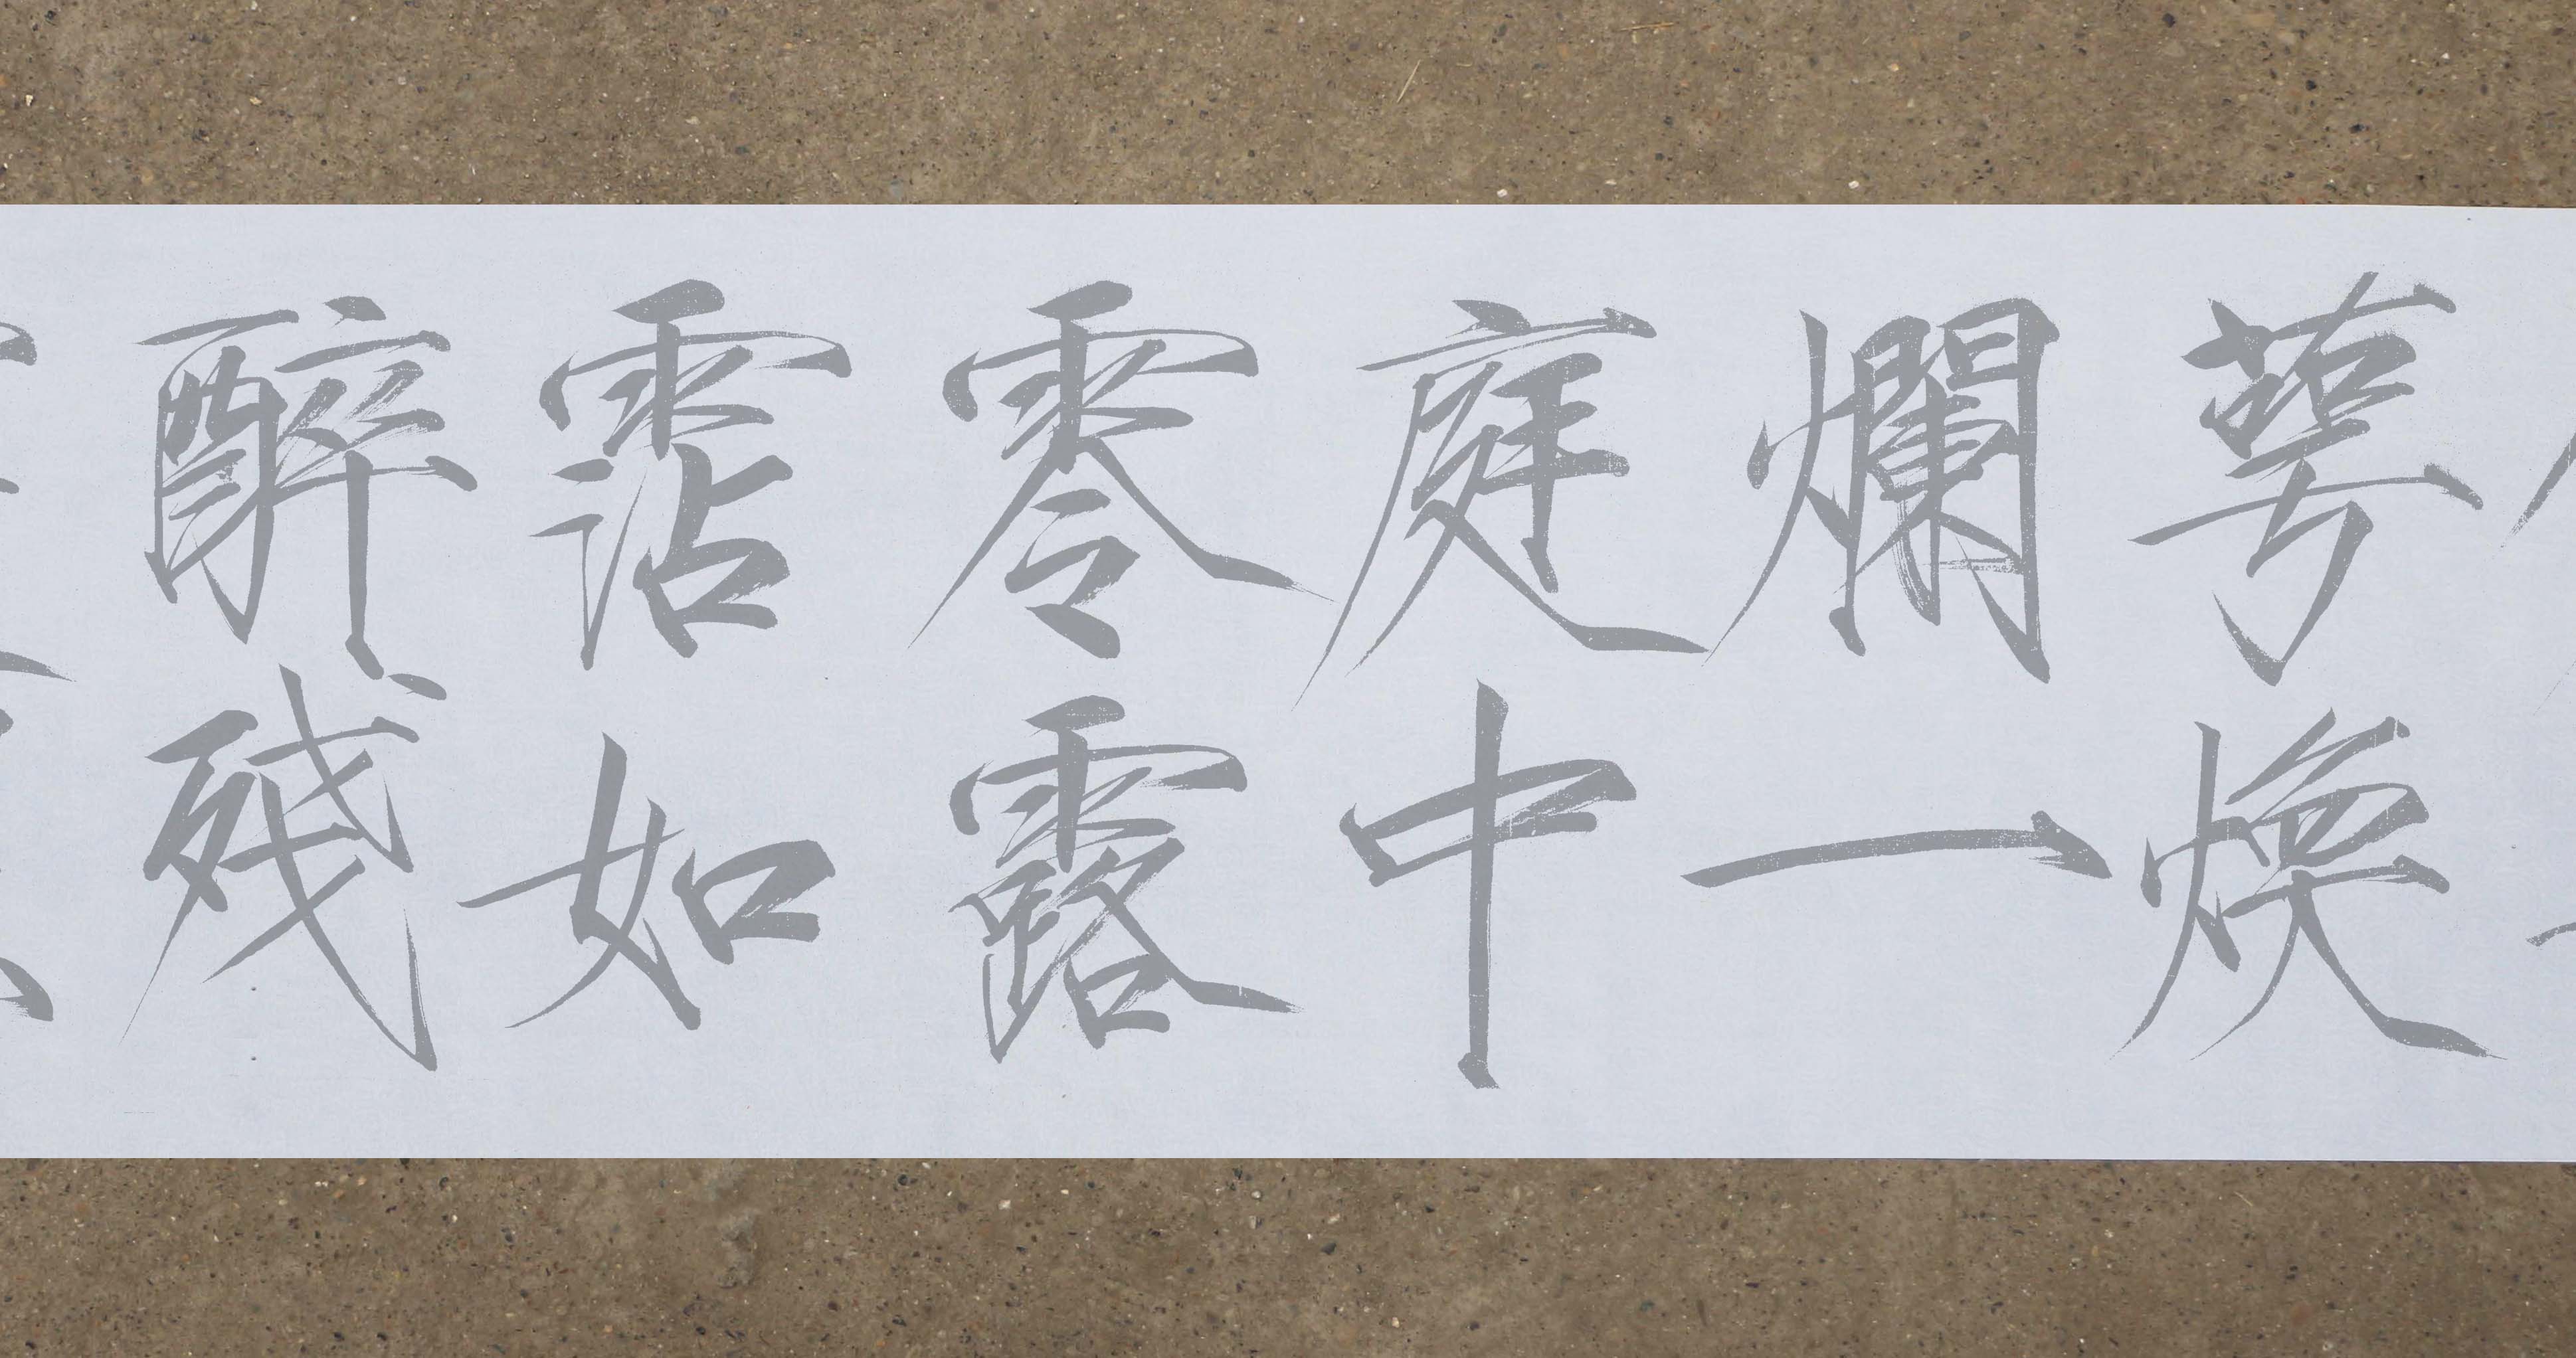 萼煥
爛一
庭中
零露
霑如
醉殘